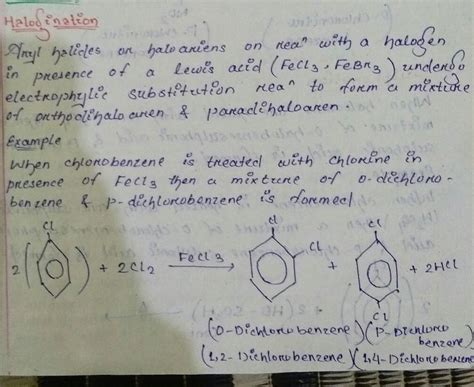 Halogination
Aryl halides or haloariens on reaⁿ with a halogen
in presence of a lewis acid (FeCl3, FeBr3) undergo
electrophylic substitution reaⁿ to form a mixture
of orthodihaloaren & paradihaloaren.
Example
When chlorobenzene is treated with chlorine in
presence of FeCl3 then a mixture of o-dichloro-
benzene & p-dichlorobenzene is formed
Cl Cl Cl
Cl
2 ( ) + 2Cl2 FeCl3 + + 2HCl
Cl
(O-Dichlorobenzene) (P-Dichloro
benzene)
(1,2-Dichlorobenzene) (1,4-Dichlorobenzene